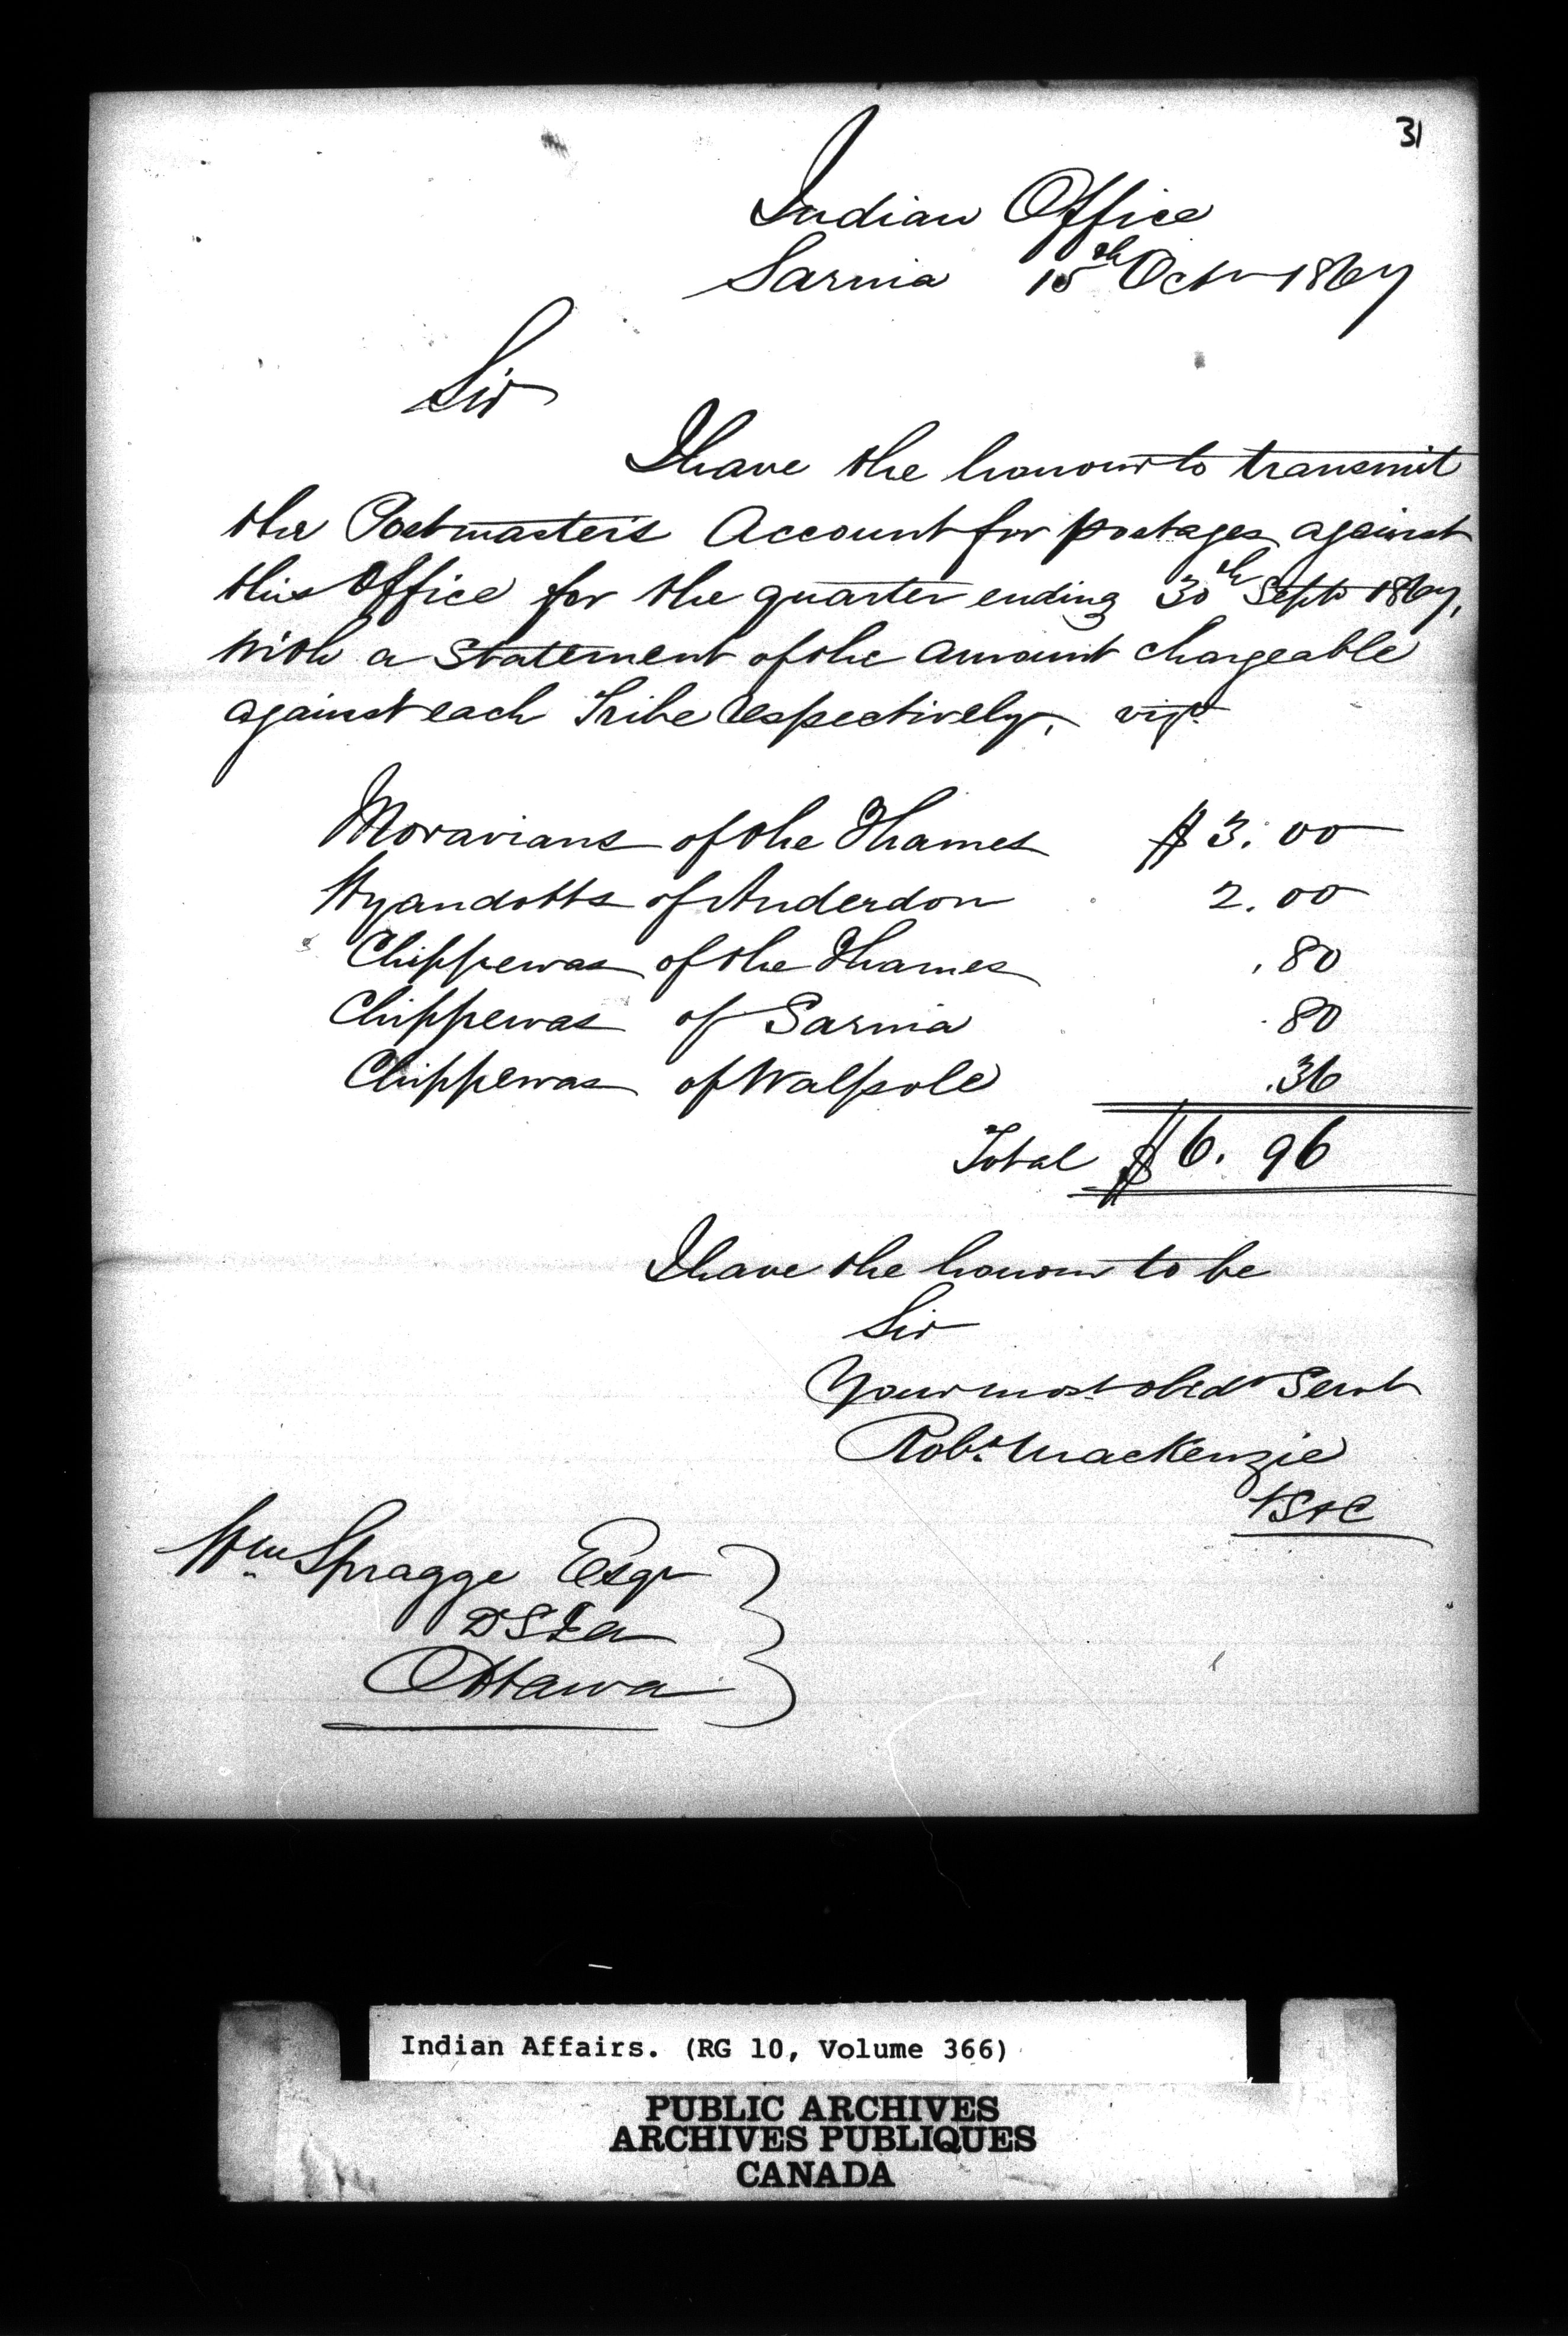 31
Indian Office
Sarnia 15th Octr 1867
Sir
I have the honour to transmit
the Postmaster's Account for postages against
this Office for the quarter ending 30th Septr 1867,
with a Statement of the amount chargeable
against each Tribe respectively, vizt
Moravians of the Thames $3.00
Wyandotts of Anderdon 2.00
Chippewas of the Thames .80
Chippewas of Sarnia .80
Chippewas of Walpole .36
Total $6.96
I have the honour to be
Sir
Your most obedt Servt
Robt. Mackenzie
Wm Spragge Esqr
DSIA
Ottawa
Indian Affairs. (RG 10, Volume 366)
PUBLIC ARCHIVES
ARCHIVES PUBLIQUES
CANADA